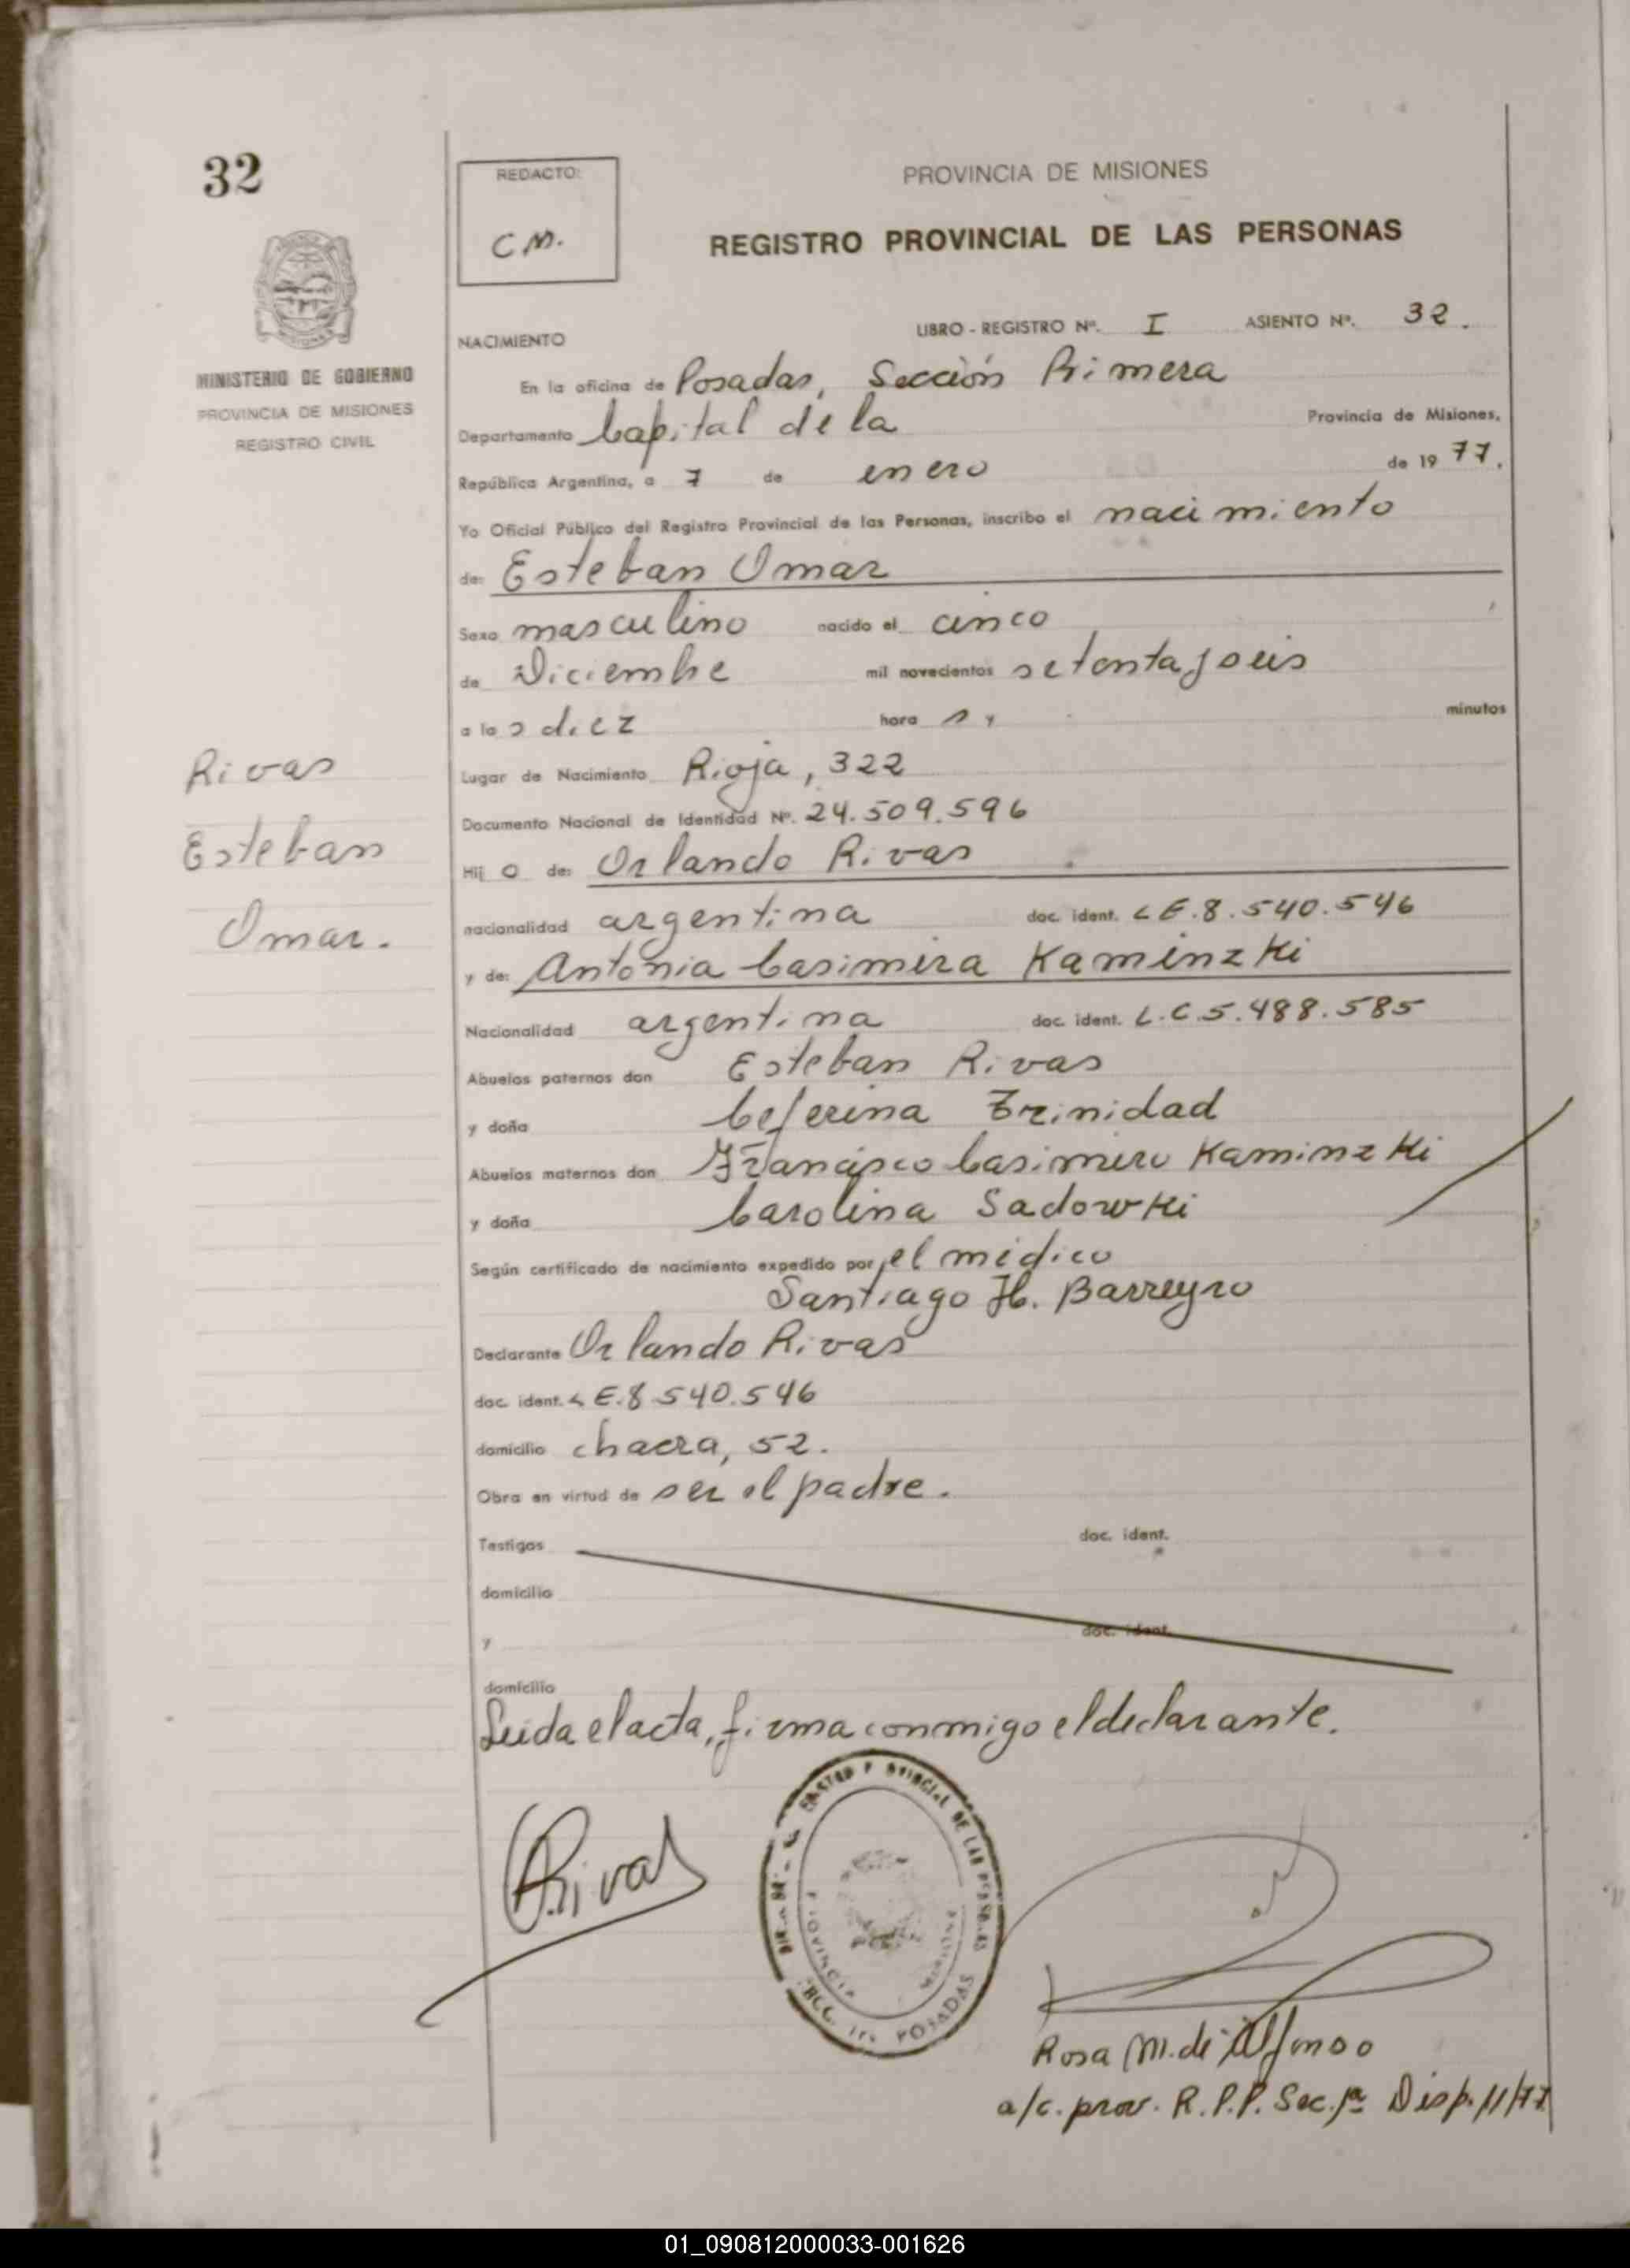 32
REDACTO:
C M.
PROVINCIA DE MISIONES
REGISTRO PROVINCIAL DE LAS PERSONAS
MINISTERIO DE GOBIERNO
PROVINCIA DE MISIONES
REGISTRO CIVIL
NACIMIENTO
LIBRO - REGISTRO Nº. I ASIENTO Nº. 32.
En la oficina de Posadas, Sección Primera
Departamento Capital de la Provincia de Misiones,
República Argentina, a 7 de enero de 19 77.
Yo Oficial Público del Registro Provincial de las Personas, inscribo el nacimiento
de: Esteban Omar
Sexo masculino nacido el cinco
de Diciembre mil novecientos setenta y seis
a las diez hora s y minutos
Lugar de Nacimiento Rioja, 322
Documento Nacional de Identidad Nº. 24.509.596
Hij o de: Orlando Rivas
nacionalidad argentina doc. ident. L E. 8.540.546
y de: Antonia Casimira Kaminzki
Nacionalidad argentina doc. ident. L.C. 5.488.585
Abuelos paternos don Esteban Rivas
y doña Ceferina Trinidad
Abuelos maternos don Francisco Casimiro Kaminzki
y doña Carolina Sadowki
Según certificado de nacimiento expedido por el médico
Santiago H. Barreyro
Declarante Orlando Rivas
doc. ident. L E. 8 540.546
domicilio chacra, 52.
Obra en virtud de ser el padre.
Testigos doc. ident.
domicilio
y doc. ident.
domicilio
Leida el acta, firma conmigo el declarante.
Rivas
Esteban
Omar.
ORivas
PROVINCIAL DE LAS PERSONAS
PROVINCIA MISIONES
SECC. 1ra POSADAS
Rosa M. de Alfonso
a/c. prov. R.P.P. Sec. 1ª Disp. 11/77
01_090812000033-001626